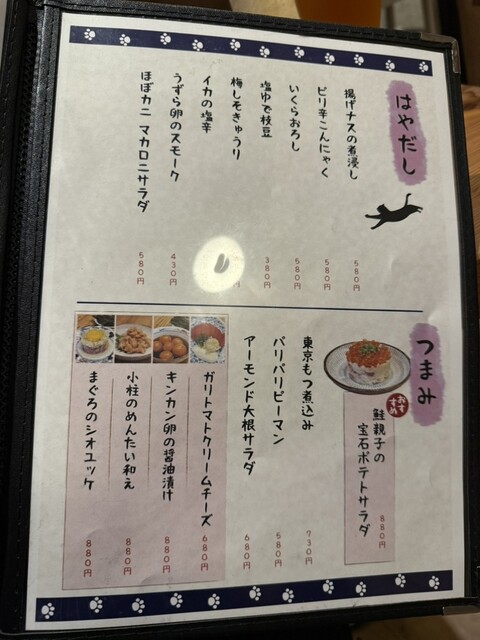 はやだし
揚げナスの煮浸し
580円
ピリ辛こんにゃく
580円
いくらおろし
580円
塩ゆで枝豆
380円
梅しそきゅうり
円
イカの塩辛
うずら卵のスモーク
430円
ほぼカニ マカロニサラダ
580円
つまみ
おすすめ
鮭親子の
宝石ポテトサラダ
880円
東京もつ煮込み
730円
パリパリピーマン
580円
アーモンド大根サラダ
680円
ガリトマトクリームチーズ
680円
キンカン卵の醤油漬け
880円
小柱のめんたい和え
880円
まぐろのシオユッケ
880円